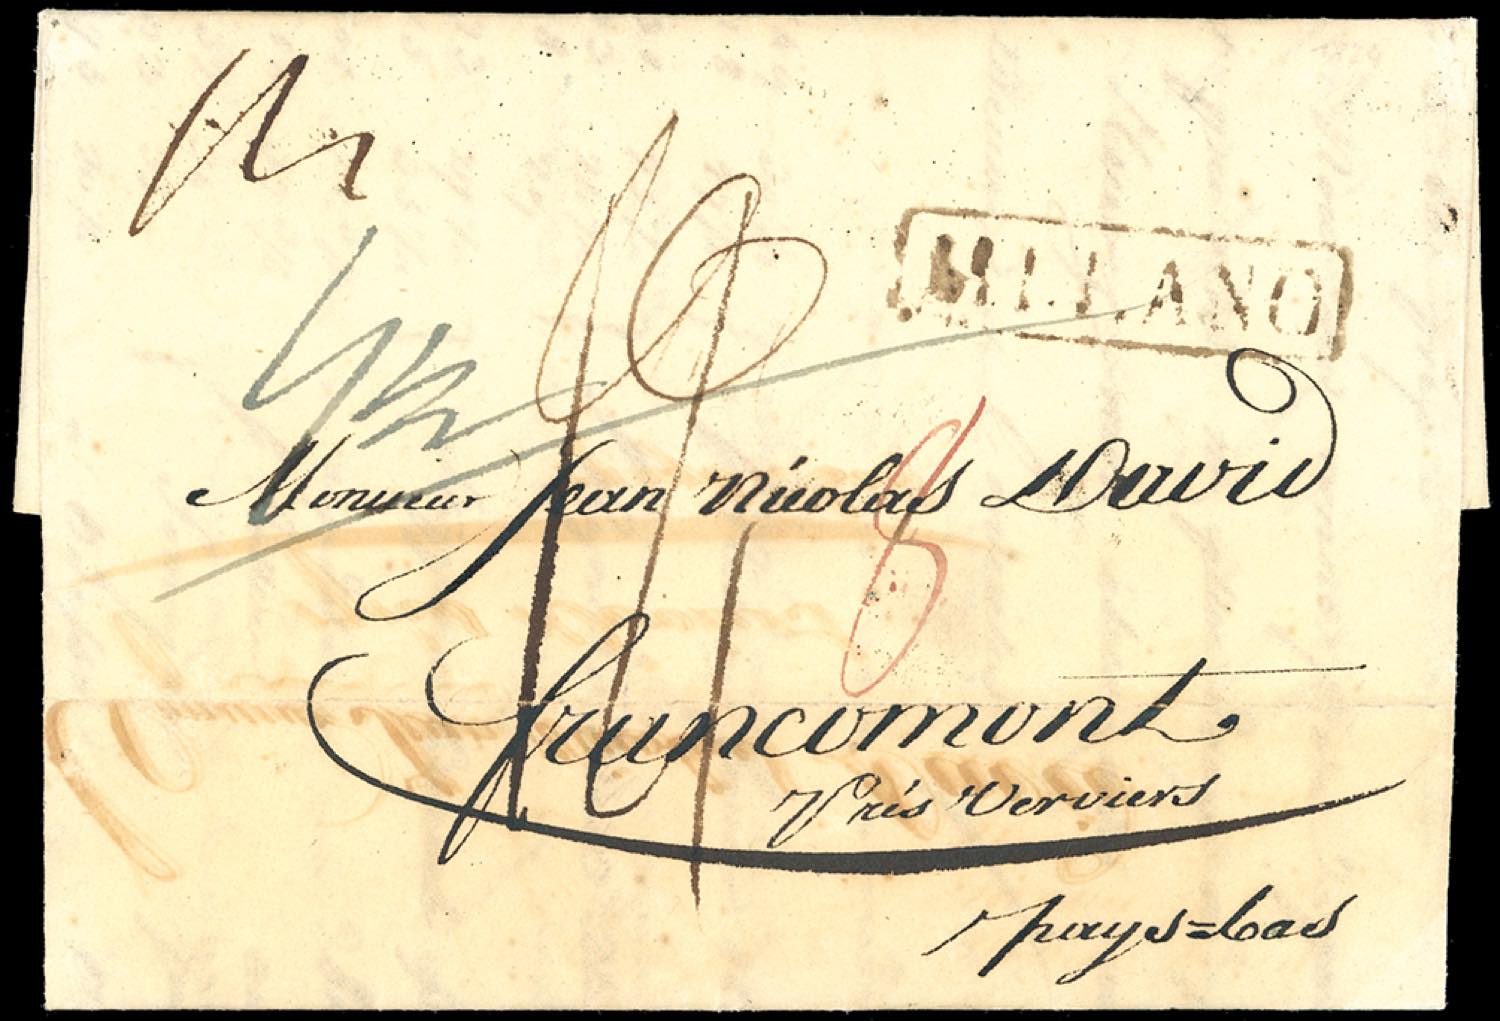 MILANO
Monsieur Jean Nicolas David
8
francomont.
Près Verviers
pays=bas